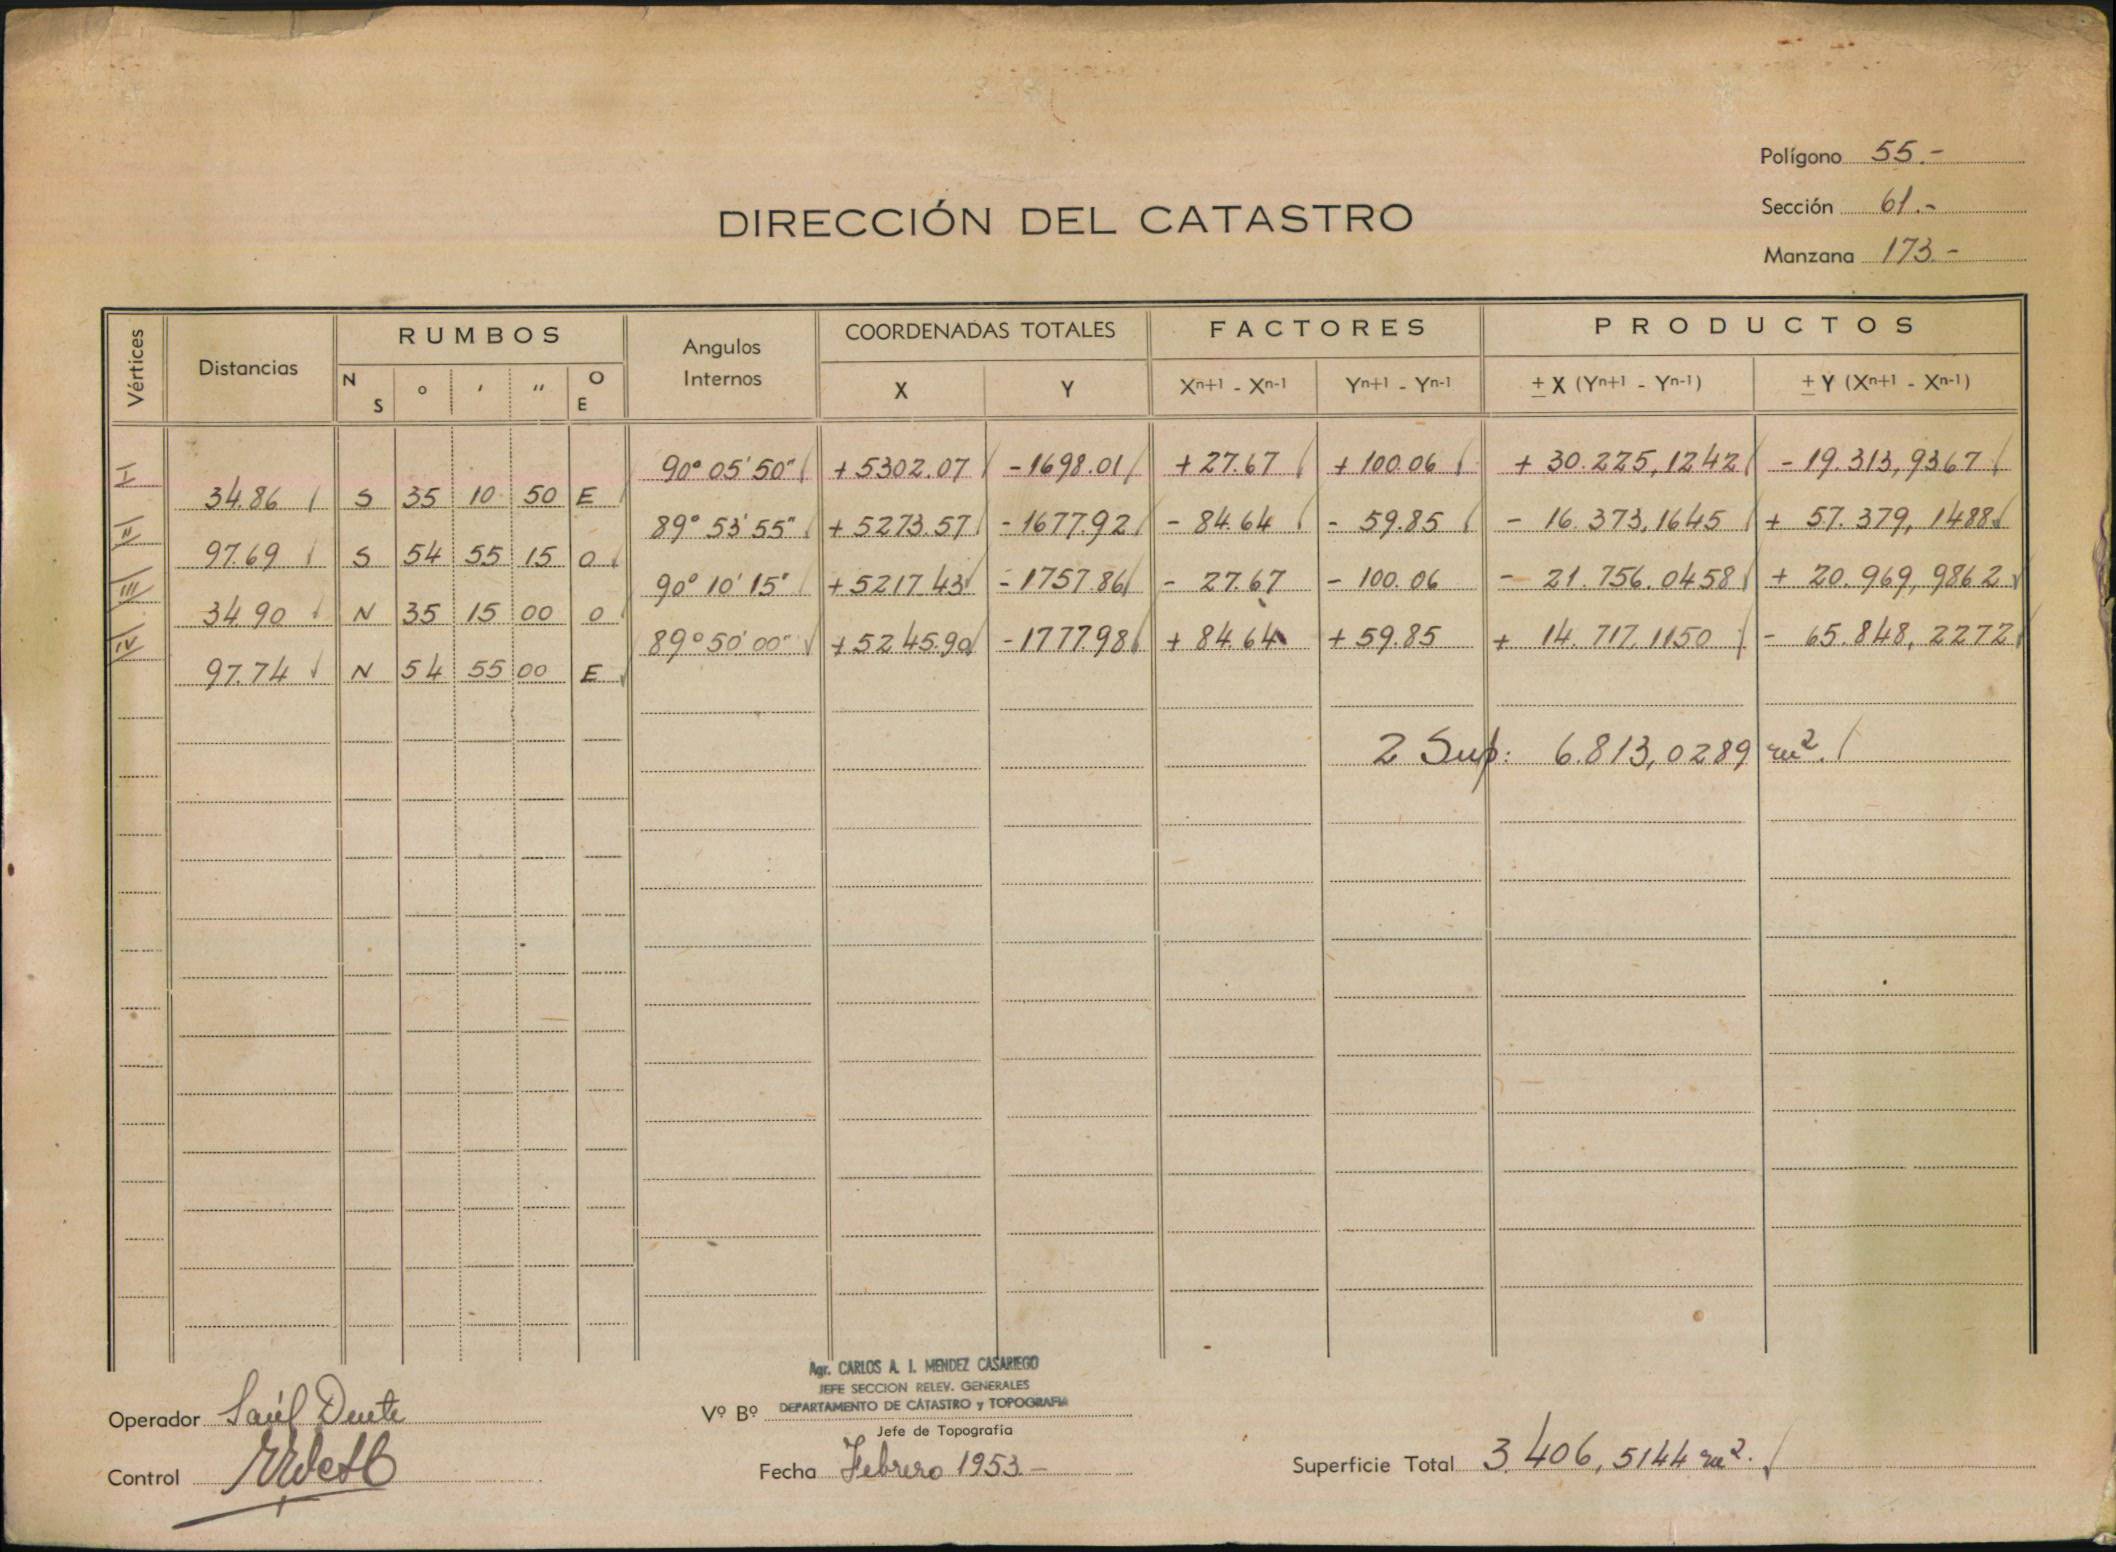 Polígono 55.-
DIRECCIÓN DEL CATASTRO
Sección 61.-
Manzana 173.-
Vértices Distancias RUMBOS Angulos Internos COORDENADAS TOTALES FACTORES PRODUCTOS
N S ° ' " O E X Y Xn+1 - Xn-1 Yn+1 - Yn-1 ± X (Yn+1 - Yn-1) ± Y (Xn+1 - Xn-1)
I 90° 05' 50" +5302.07 -1698.01 +27.67 +100.06 + 30.225,1242 - 19.313,9367
34.86 S 35 10 50 E
II 89° 53' 55" +5273.57 -1677.92 - 84.64 - 59.85 - 16.373,1645 + 57.379,1488
97.69 S 54 55 15 O
III 90° 10' 15" +5217.43 -1757.86 - 27.67 - 100.06 - 21.756.0458 + 20.969,9862
34.90 N 35 15 00 O
IV 89° 50' 00" +5245.90 -1777.98 + 84.64 +59.85 + 14.717,1150 - 65.848,2272
97.74 N 54 55 00 E
2 Sup: 6.813,0289 m².
Agr. CARLOS A. I. MENDEZ CASARIEGO
JEFE SECCION RELEV. GENERALES
DEPARTAMENTO DE CATASTRO y TOPOGRAFIA
Operador Saúl
Vº Bº
Jefe de Topografía
Control
Fecha Febrero 1953.-
Superficie Total 3.406,5144 m².